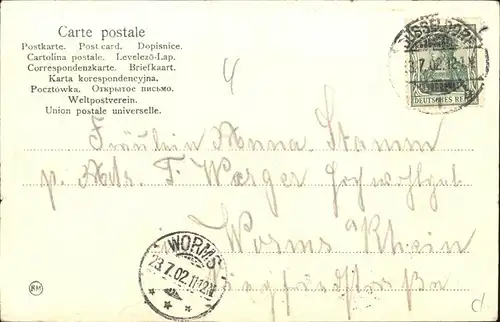 Carte postale
Postkarte. Post card. Dopisnice.
Cartolina postale. Levelező-Lap.
Correspondenzkarte. Briefkaart.
Karta korespondencyjna.
Pocztówka. Открытое письмо.
Weltpostverein.
Union postale universelle.
DÜSSELDORF
7.02.12
DEUTSCHES REICH
Fräulein Anna Stamm
p. Adr. F. Warger Hochwohlgeb.
Worms a/Rhein
WORMS
23.7.02.11-12V
RM